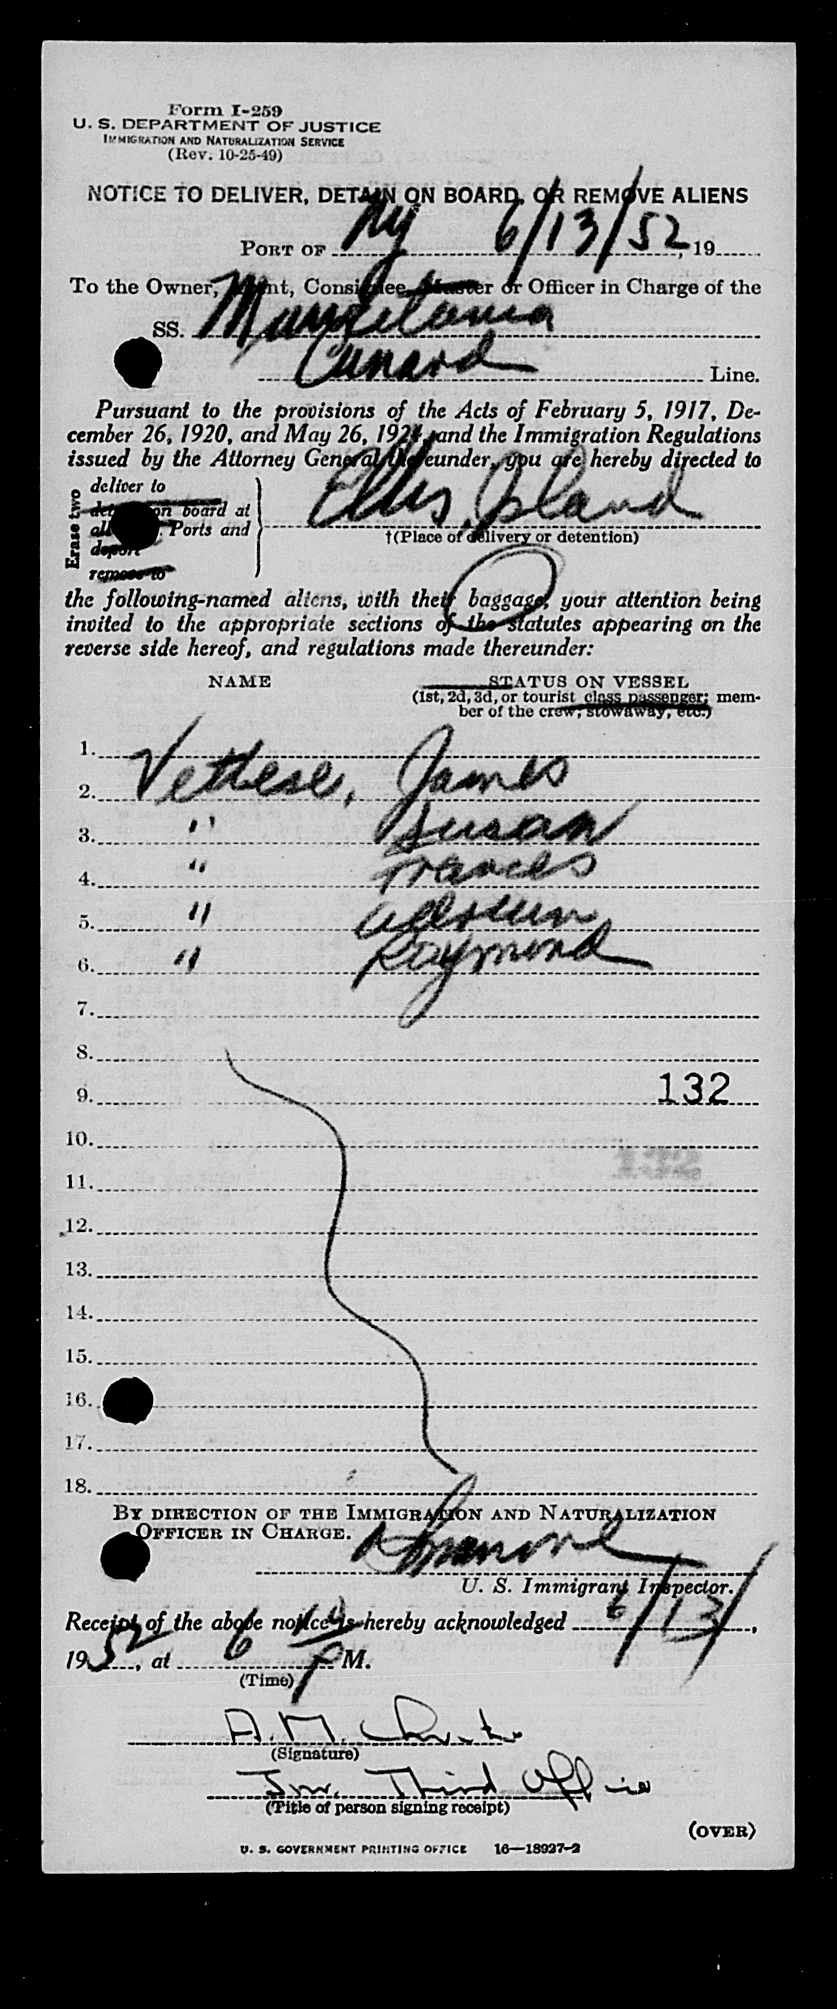 Form I-259
U. S. DEPARTMENT OF JUSTICE
IMMIGRATION AND NATURALIZATION SERVICE
(Rev. 10-25-49)
NOTICE TO DELIVER, DETAIN ON BOARD, OR REMOVE ALIENS
PORT OF NY 6/13/52, 19
To the Owner, Agent, Consignee, Master or Officer in Charge of the
SS. Mauretania
Cunard Line.
Pursuant to the provisions of the Acts of February 5, 1917, De-
cember 26, 1920, and May 26, 1924, and the Immigration Regulations
issued by the Attorney General thereunder, you are hereby directed to
Erase two
deliver to
detain on board at
all Ports and
deport
remove to
Ellis Island
†(Place of delivery or detention)
the following-named aliens, with their baggage, your attention being
invited to the appropriate sections of the statutes appearing on the
reverse side hereof, and regulations made thereunder:
NAME STATUS ON VESSEL
(1st, 2d, 3d, or tourist class passenger; mem-
ber of the crew, stowaway, etc.)
1.
2. Vettese, James
3. " Susan
4. " Frances
5. "
6. " Raymond
7.
8.
9. 132
10.
132
11.
12.
13.
14.
15.
16.
17.
18.
BY DIRECTION OF THE IMMIGRATION AND NATURALIZATION
OFFICER IN CHARGE.
U. S. Immigrant Inspector.
Receipt of the above notice is hereby acknowledged 6/13/,
1952, at 6 P M.
(Time)
A. M.
(Signature)
Jnr. Third Officer
(Title of person signing receipt)
(OVER)
U. S. GOVERNMENT PRINTING OFFICE 16—18927-2